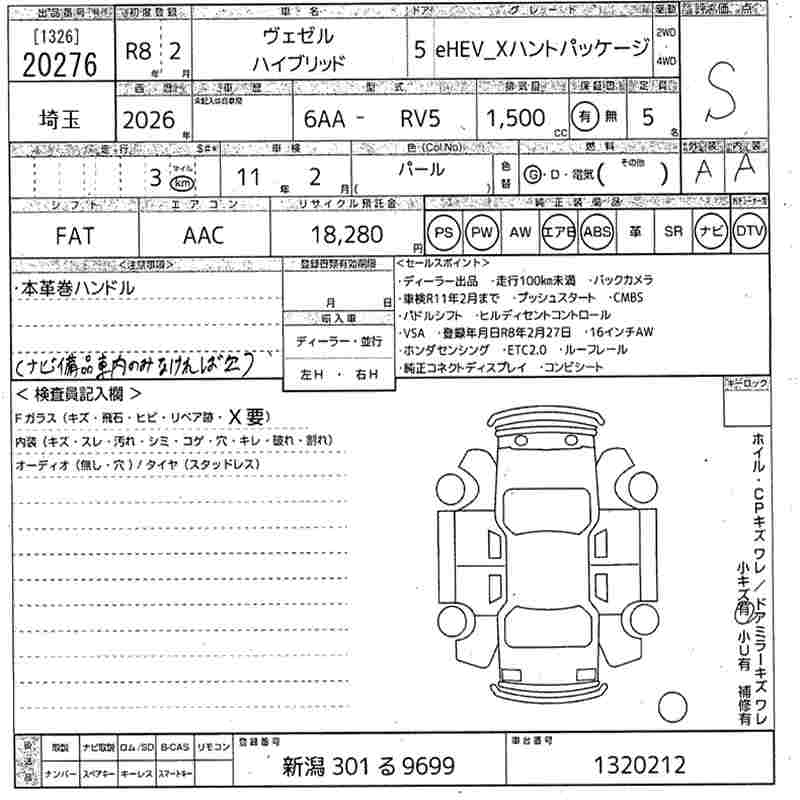 出品番号 初度登録 車名 ドア グレード 駆動 評価点
[1326]
20276 R8年 2月 ヴェゼル ハイブリッド 5 eHEV_Xハントパッケージ 2WD・4WD S
埼玉 西暦 車歴 型式 排気量 保証書 定員
2026年 未記入は自家用 6AA - RV5 1,500cc 有 無 5名
走行 S#* 車検 色(Col.No) 燃料 外装 内装
3 マイル km 11年 2月 パール 色替 G・D・電気 (その他) A A
シフト エアコン リサイクル預託金 純正装備品
FAT AAC 18,280円 PS PW AW エアB ABS 革 SR ナビ DTV
<注意事項>
・本革巻ハンドル
(ナビ備品車内のみなければ欠)
登録書類有効期限
月 日
輸入車
ディーラー・並行
左H ・ 右H
<セールスポイント>
・ディーラー出品 ・走行100km未満 ・バックカメラ
・車検R11年2月まで ・プッシュスタート ・CMBS
・パドルシフト ・ヒルディセントコントロール
・VSA ・登録年月日R8年2月27日 ・16インチAW
・ホンダセンシング ・ETC2.0 ・ルーフレール
・純正コネクトディスプレイ ・コンビシート
キーロック
< 検査員記入欄 >
Fガラス (キズ・飛石・ヒビ・リペア跡・X要)
内装 (キズ・スレ・汚れ・シミ・コゲ・穴・キレ・破れ・割れ)
オーディオ (無し・穴) / タイヤ (スタッドレス)
ホイル・CPキズ ワレ / ドアミラーキズ ワレ
小キズ有 小U有 補修有
後送品 取説 ナビ取説 ロム/SD B-CAS リモコン
ナンバー スペアキー キーレス スマートキー
登録番号
新潟 301 る 9699
車台番号
1320212